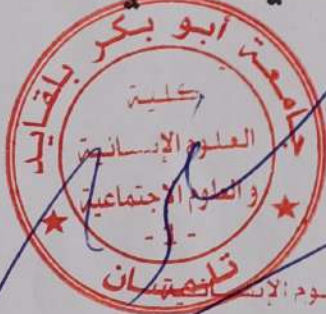 جامعة أبو بكر بلقايد
كلية
العلوم الإنسانية
و العلوم الاجتماعية
- 1 -
تلمسان